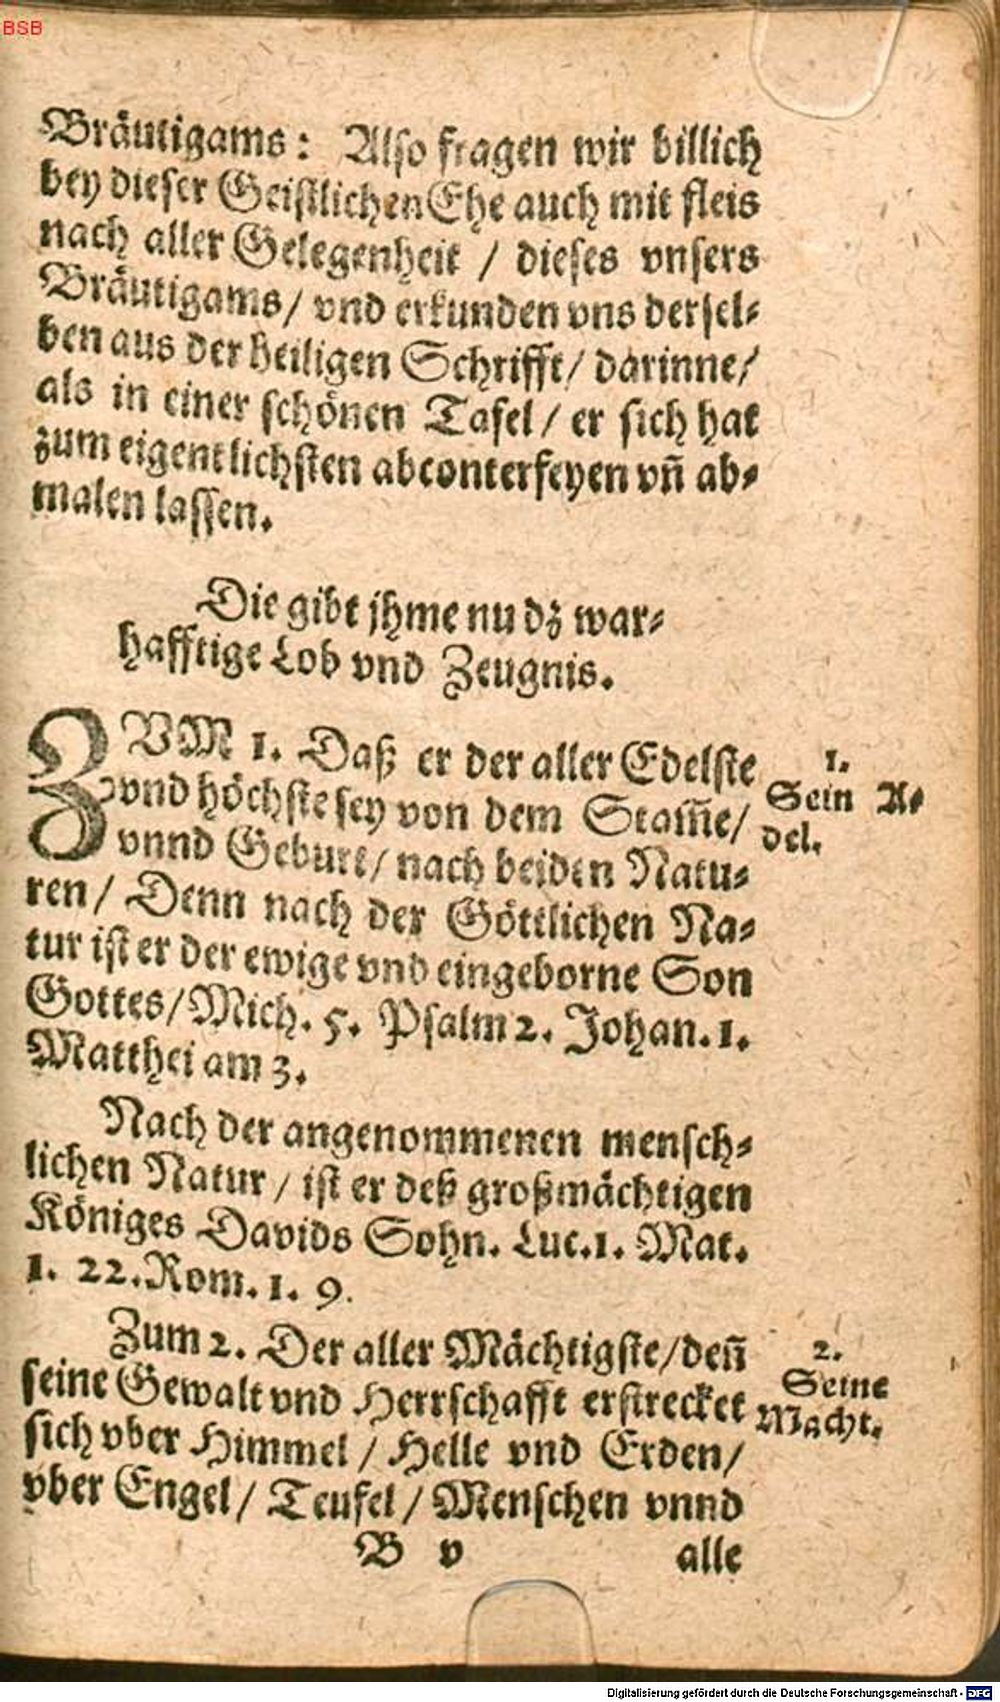 BSB
Bräutigams: Also fragen wir billich
bey dieser Geistlichen Ehe auch mit fleis
nach aller Gelegenheit / dieses vnsers
Bräutigams/ vnd erkunden vns dersel⸗
ben aus der heiligen Schrifft/ darinne/
als in einer schönen Tafel / er sich hat
zum eigentlichsten abconterfeyen vñ ab⸗
malen lassen.
Die gibt jhme nu dz war⸗
hafftige Lob vnd Zeugnis.
ZVM 1. Daß er der aller Edelste
vnd höchste sey von dem Stam̃e/
vnnd Geburt/ nach beiden Natu⸗
ren/ Denn nach der Göttlichen Na⸗
tur ist er der ewige vnd eingeborne Son
Gottes/ Mich. 5. Psalm 2. Johan. 1.
Matthei am 3.
1.
Sein A⸗
del.
Nach der angenommenen mensch⸗
lichen Natur / ist er deß großmächtigen
Königes Davids Sohn. Luc. 1. Mat.
1. 22. Rom. 1. 9.
Zum 2. Der aller Mächtigste/ deñ
seine Gewalt vnd Herrschafft erstrecket
sich vber Himmel / Helle vnd Erden/
vber Engel/ Teufel / Menschen vnnd
2.
Seine
Macht.
B v
alle
Digitalisierung gefördert durch die Deutsche Forschungsgemeinschaft - DFG